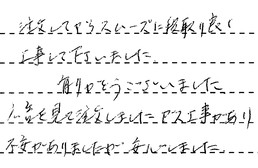 注文してからスムーズに段取り良く
工事して下さいました
有りがとうございました
広告を見て注文しましたガス工事があり
不安がありましたが安心しました